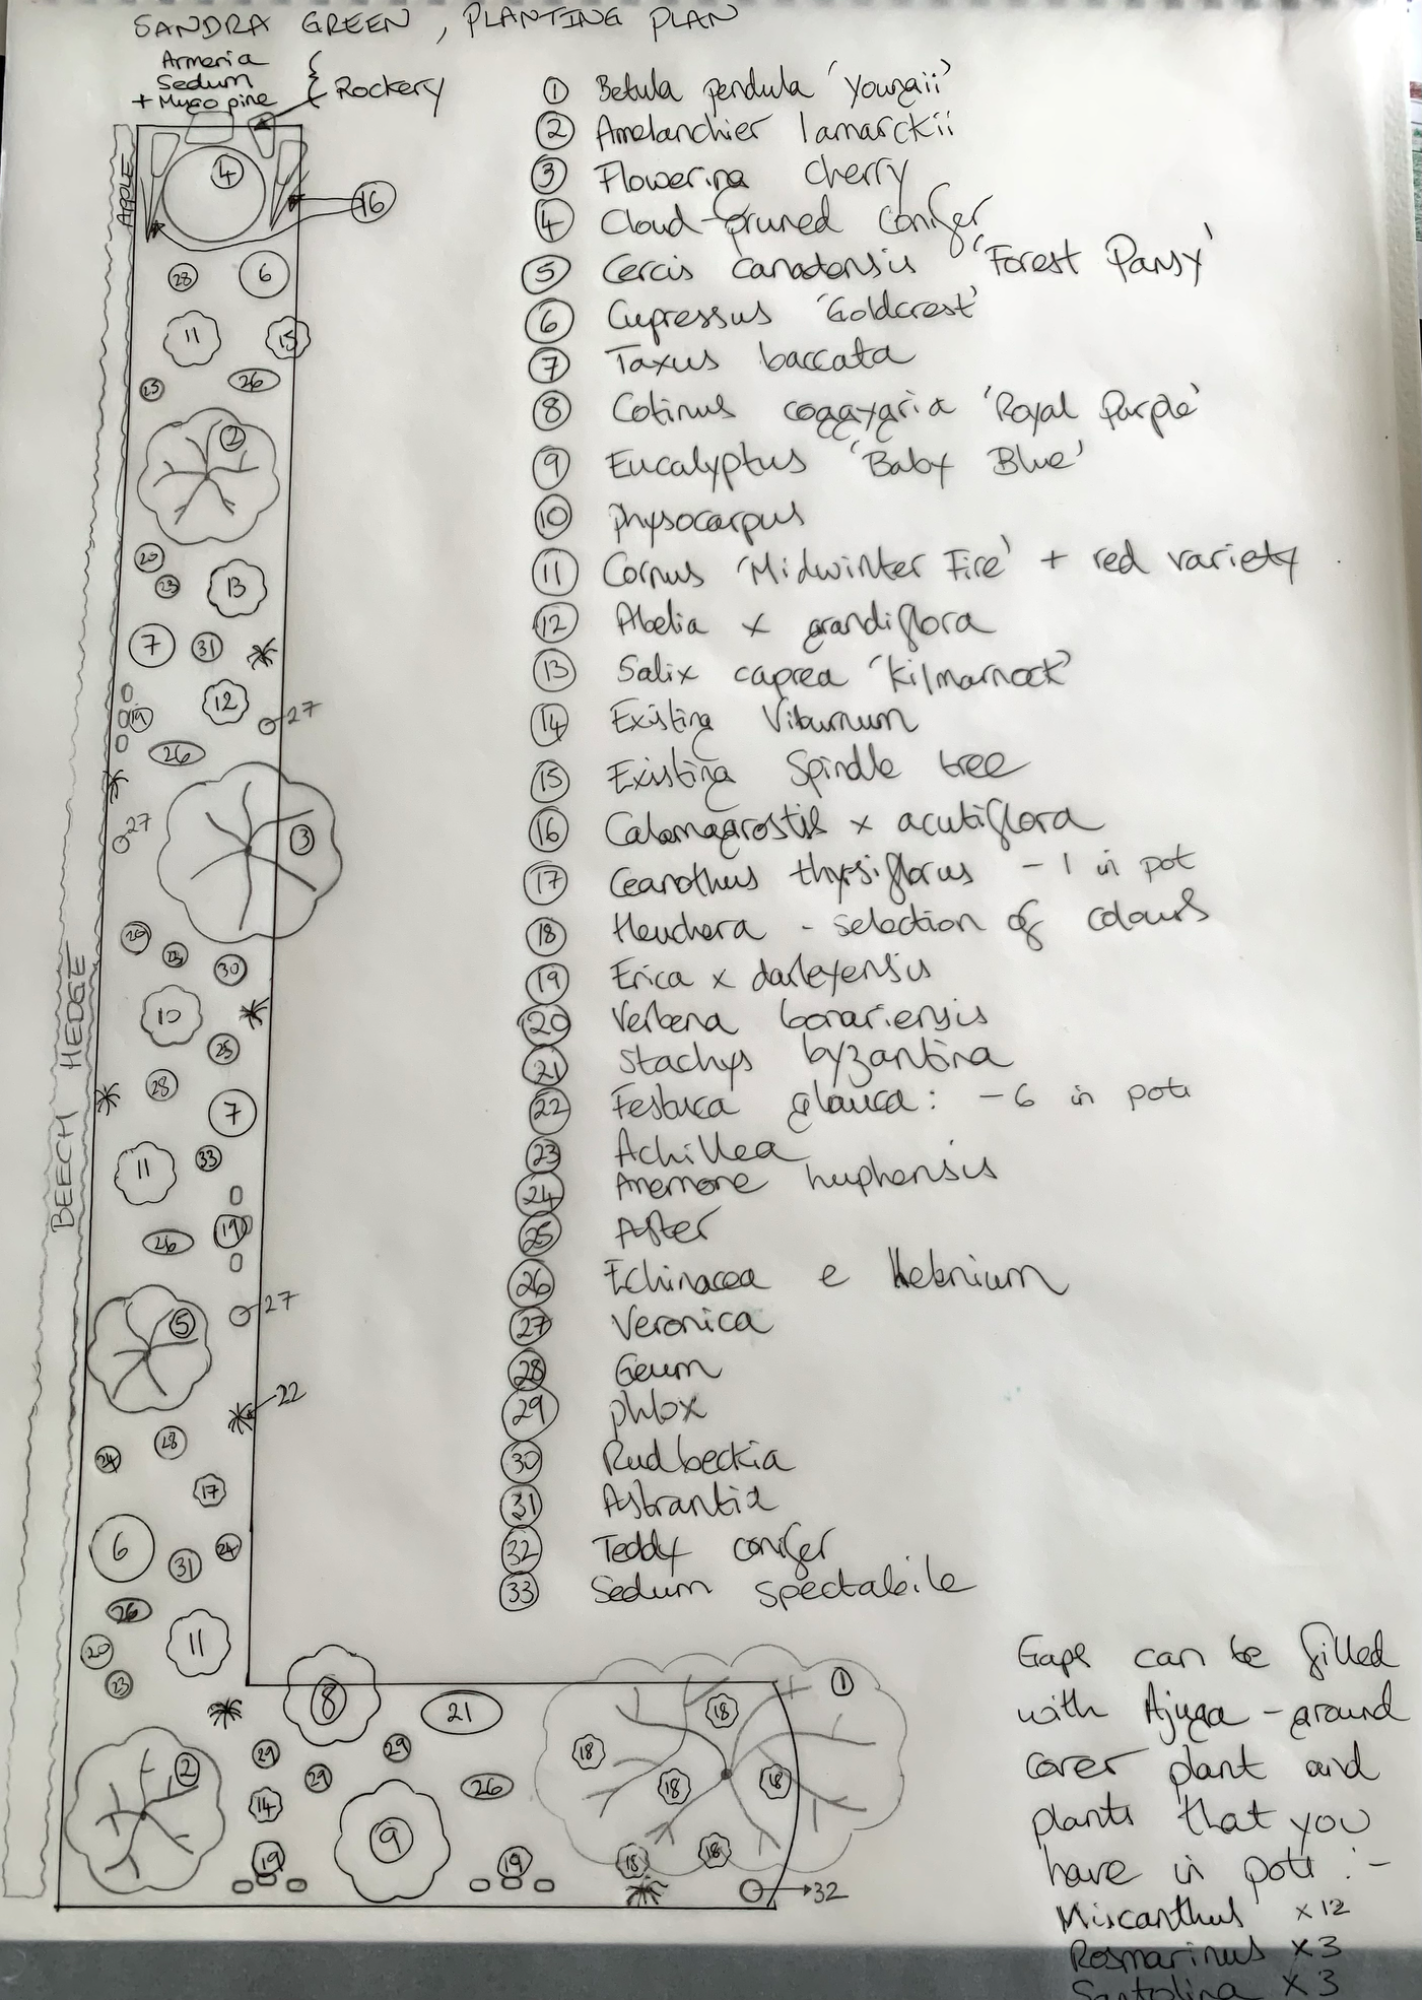 SANDRA GREEN, PLANTING PLAN
Armeria
Sedum
+ Mugo pine
Rockery
① Betula pendula 'Youngii'
② Amelanchier lamarckii
③ Flowering cherry
④ Cloud-pruned conifer
⑤ Cercis canadensis 'Forest Pansy'
⑥ Cupressus 'Goldcrest'
⑦ Taxus baccata
⑧ Cotinus coggygria 'Royal Purple'
⑨ Eucalyptus 'Baby Blue'
⑩ Physocarpus
⑪ Cornus 'Midwinter Fire' + red variety
⑫ Abelia x grandiflora
⑬ Salix caprea 'Kilmarnock'
⑭ Existing Viburnum
⑮ Existing Spindle tree
⑯ Calamagrostis x acutiflora
⑰ Ceanothus thyrsiflorus - 1 in pot
⑱ Heuchera - selection of colours
⑲ Erica x darleyensis
⑳ Verbena bonariensis
㉑ Stachys byzantina
㉒ Festuca glauca: - 6 in pots
㉓ Achillea
㉔ Anemone huphensis
㉕ Aster
㉖ Echinacea e Helenium
㉗ Veronica
㉘ Geum
㉙ phlox
㉚ Rudbeckia
㉛ Astrantia
㉜ Teddy conifer
㉝ Sedum spectabile
Gaps can be filled
with Ajuga - ground
cover plant and
plants that you
have in pots :-
Miscanthus x 12
Rosmarinus x 3
Santolina x 3
APPLE
BEECH HEDGE
4
16
28 6
11 15
23 26
2
20
23 13
7 31
12
19 27
26
27 3
20 23 30
10
25
28 7
11 33
19
26
5 27
22
28
24
17
6 31 24
26
20 11
23
8 21 18 1
29 29 18
2 29 26 18 18
14
9
19 19 18 18
32